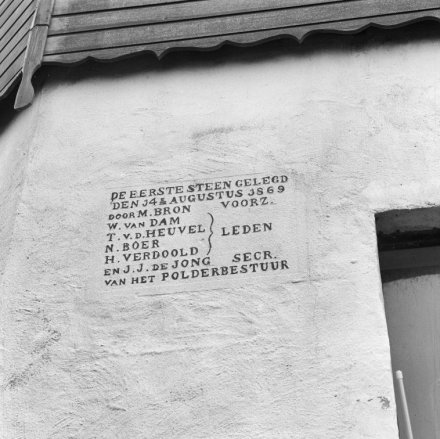 DE EERSTE STEEN GELEGD
DEN J4E AUGUSTUS J869
DOOR M. BRON VOORZ.
W. VAN DAM
T. v. D. HEUVEL
N. BOER
H. VERDOOLD
LEDEN
EN J. J. DE JONG SECR.
VAN HET POLDERBESTUUR